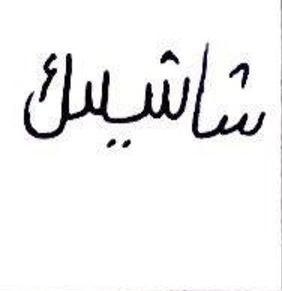 شاشيك